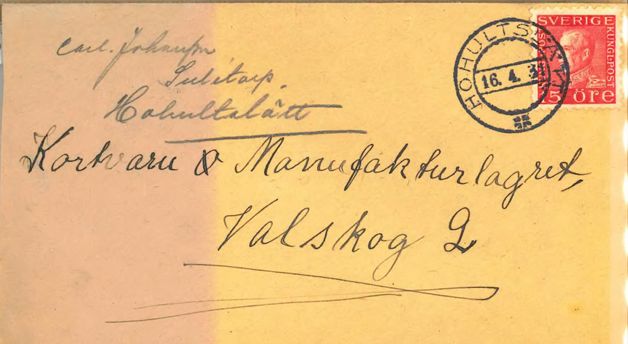 Carl Johansson
Hohultslätt
Kortvaru & Manufakturlagret,
Valskog 2
HOHULTSLÄTT
16. 4. 3
SVERIGE
KUNGL. POST
15 ÖRE